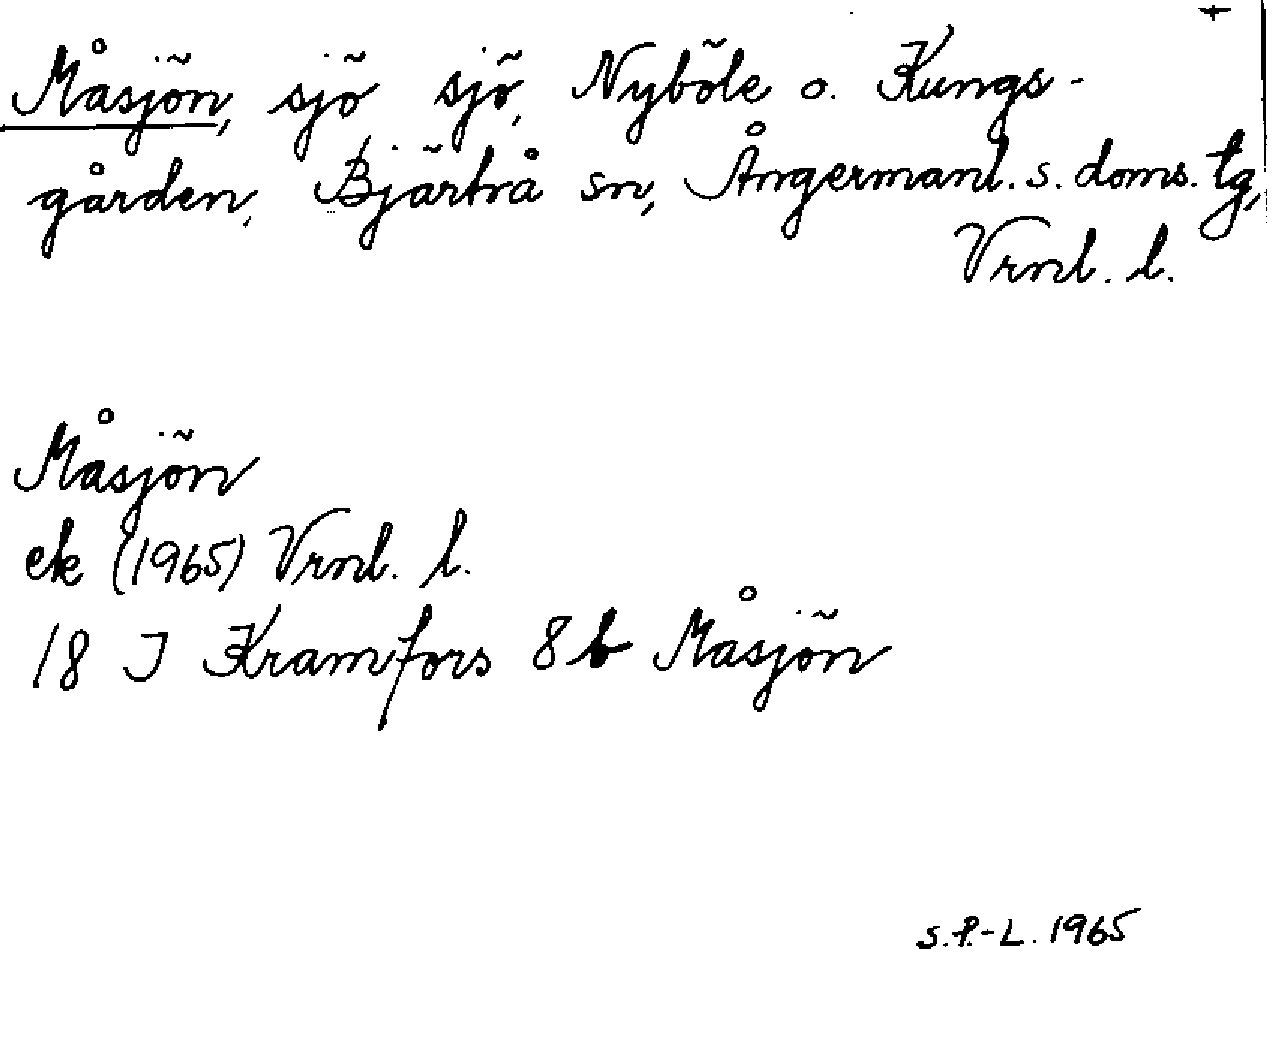 Måsjön, sjö sjö, Nyböle o. Kungs-
gården, Bjärtrå sn, Ångermanl. s. doms. tg,
Vrnl. l.
Måsjön
ek (1965) Vrnl. l.
18 J Kramfors 8b Måsjön
S.P.-L. 1965